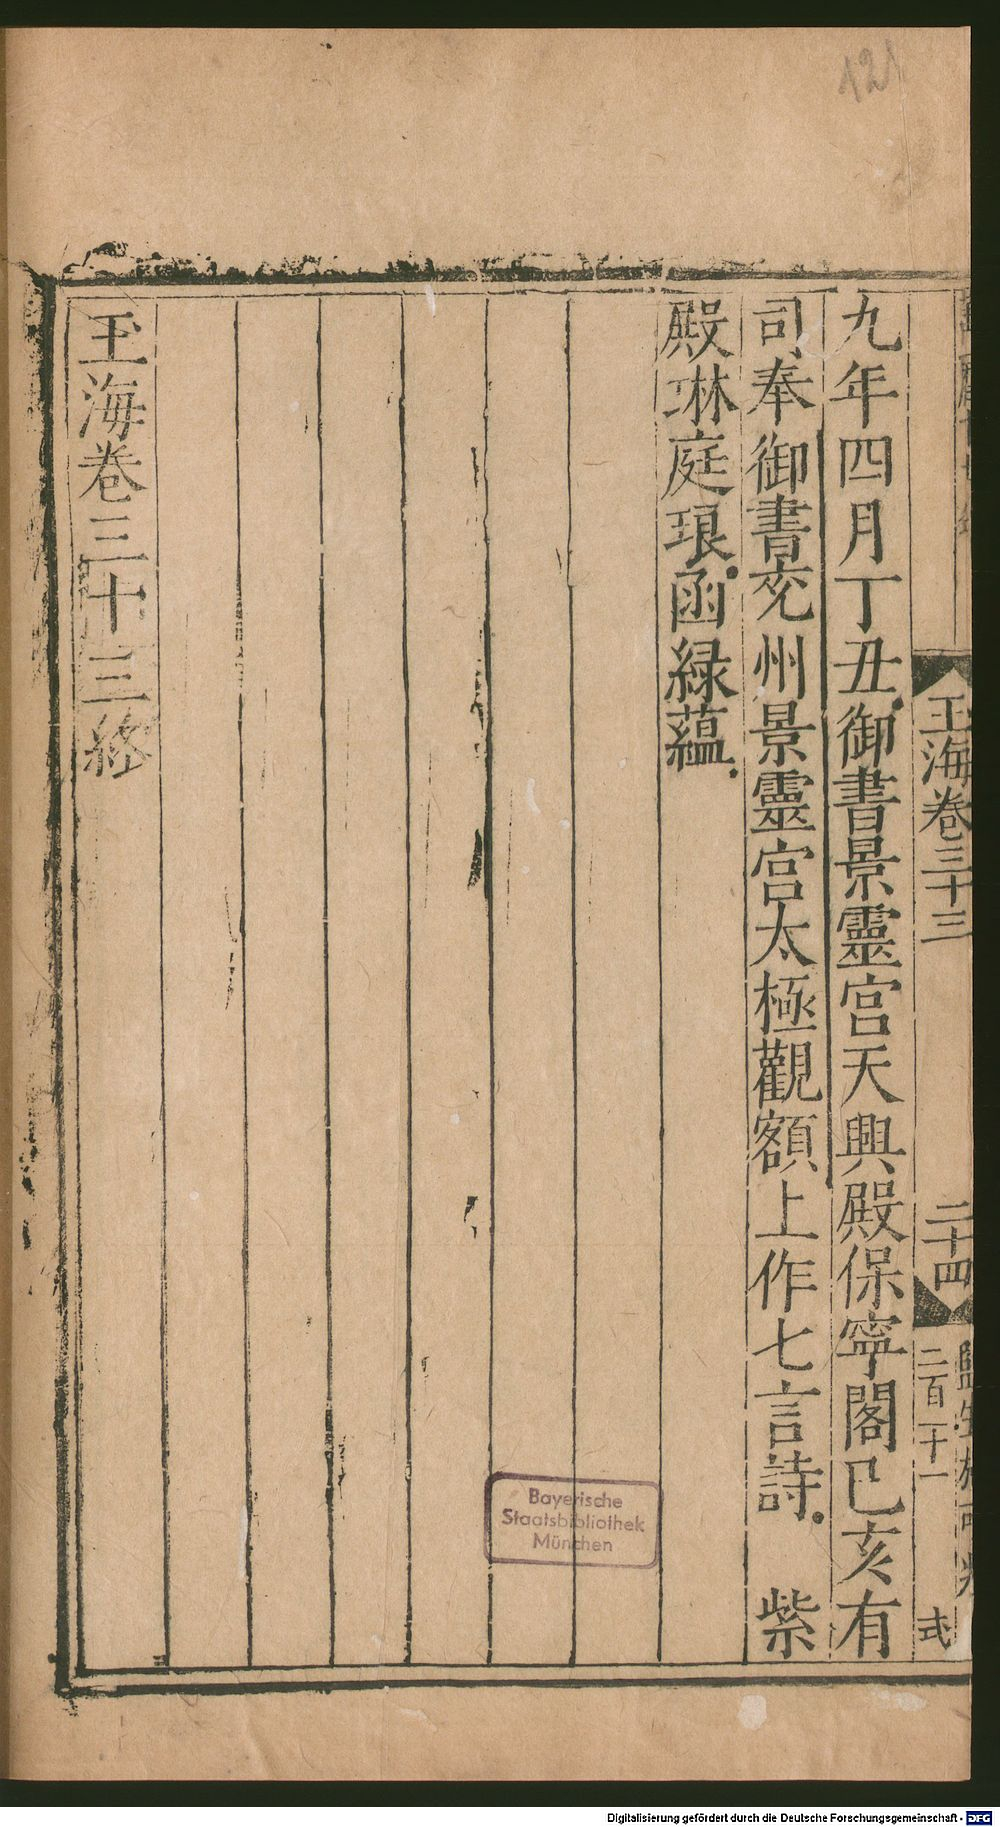 121
九年四月丁丑御書景靈宮天興殿保寧閣己亥有
司奉御書兖州景靈宮太極觀額上作七言詩　紫
殿琳庭琅函緑蘊
玉海卷三十三終
玉海卷三十三
二十四
二百二十一
弍
Bayerische
Staatsbibliothek
München
Digitalisierung gefördert durch die Deutsche Forschungsgemeinschaft - DFG